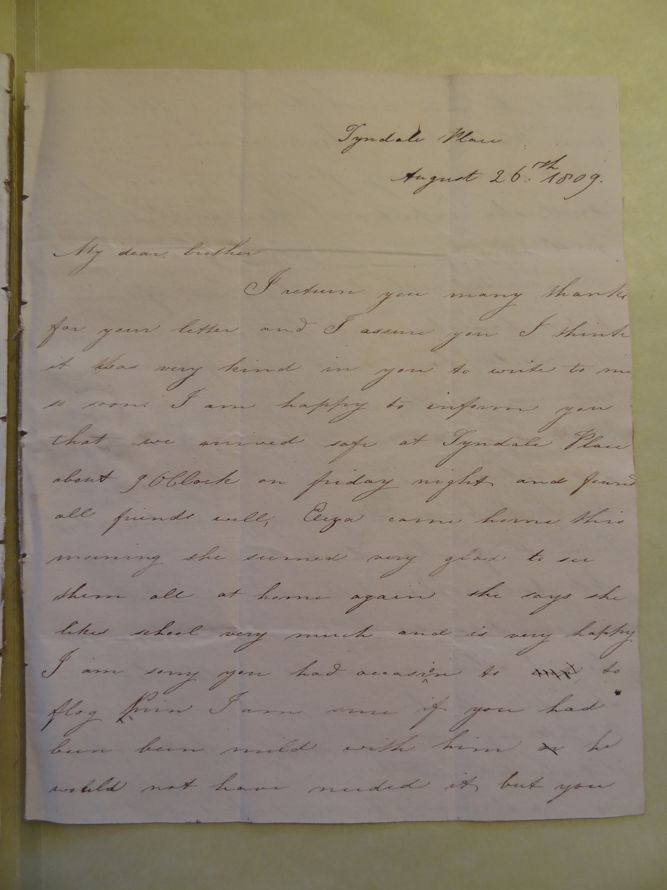 Tyndale Place
August 26.th 1809.
My dear brother
I return you many thanks
for your letter and I assure you I think
it was very kind in you to write to me
so soon. I am happy to inform you
that we arrived safe at Tyndale Place
about 9 OClock on friday night, and found
all friends well, Eliza came home this
morning she seemed very glad to see
them all at home again she says she
likes school very much and is very happy
I am sorry you had occasion to to
flog I am sure if you had
been been mild with him he
would not have needed it, but you